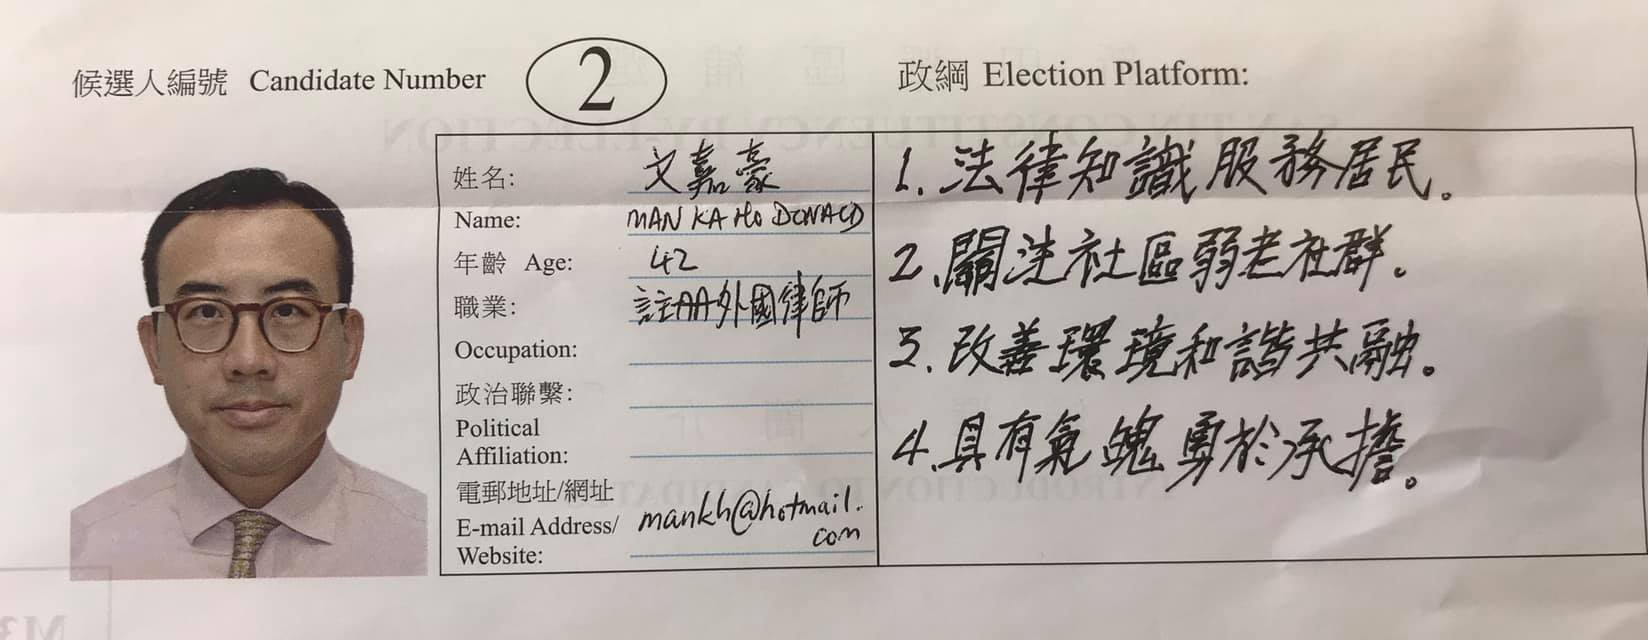 候選人編號 Candidate Number 2
政綱 Election Platform:
姓名: 文嘉豪
Name: MAN KA HO DONALD
年齡 Age: 42
職業: 註冊外國律師
Occupation:
政治聯繫:
Political
Affiliation:
電郵地址/網址
E-mail Address/ mankh@hotmail.
Website: com
1. 法律知識服務居民。
2. 關注社區弱老社群。
3. 改善環境和諧共融。
4. 具有氣魄勇於承擔。